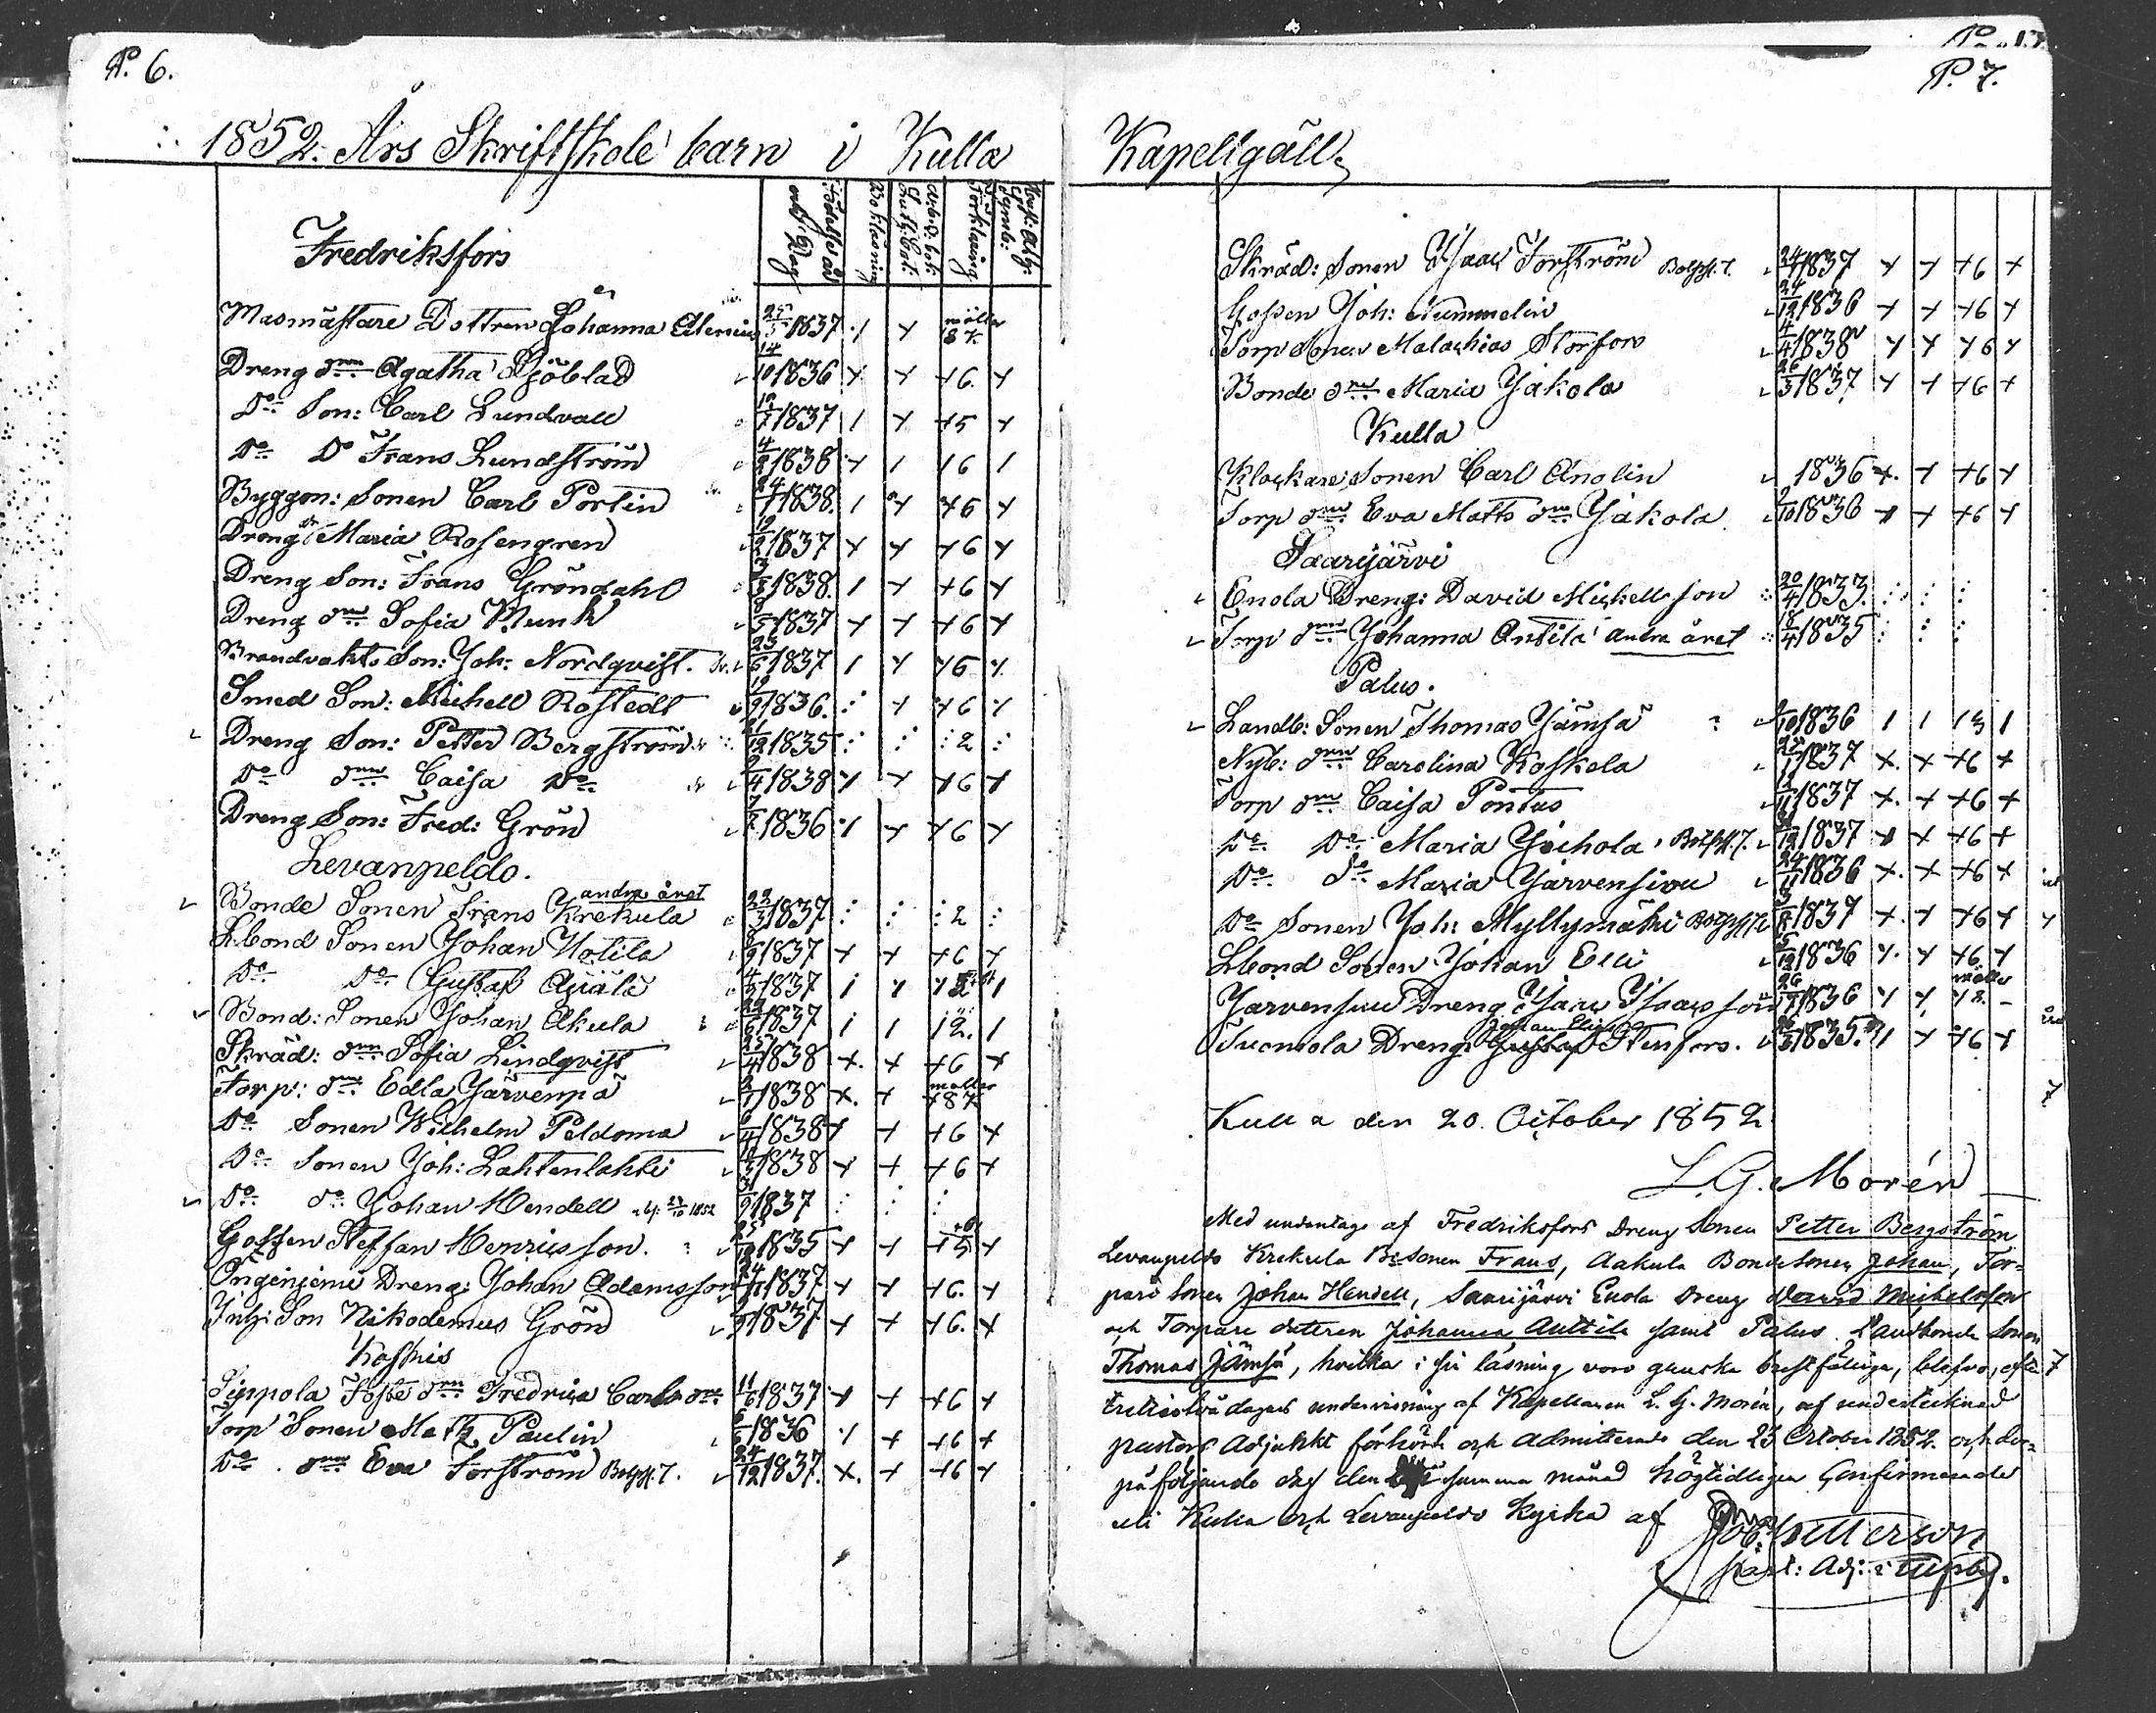 P. 6.
1852. Års Skriftskole barn i Kulla
Födelse år och Dag
Bokläsning
Förklaring
Fredriksfors
Masmästare Dottren Johanna 25/5 1837
Dreng dren Agatha Sjöblad 14/10 1836 + + +6. +
Do Son: Carl Lundvall 1837 1 + +5 +
Do Do Frans Lundström 4/2 1838 + 1 16 1
Byggm: Sonen Carl Portin 1838. 1 + +6 +
Dreng dr Maria Rosengren 19/2 1837 + + +6 +
Dreng Son: Frans Gröndahl 1838. 1 + +6 +
Dreng dren Sofia Munk 8/5 1837 + + +6 +
Brandvakts Son: Joh: Nordqvist. 1837 1 + +6 +
Smed Son: Michell Rostedt 19/9 1836. + +6 +
Dreng Son: Petter Bergström 21/12 1835 2
Do dren Caisa Do 9/4 1838 1 + +6 +
Dreng Son: Fred: Grön 1836 1 + +6 +
Levanpeldo.
andra året
Bonde Sonen Frans Krekula 22/3 1837 2
Lbond Sonen Johan Hotila 1837 + + +6 +
Do Do Gustaf Äjälä 1837 1
Bond: Sonen Johan Akula 22/6 1837 1 1 12. 1
Skräd: dren Sofia Lindqvist 25/4 1838 +. + +6 +
Torp: dren Edla Järvenpä 2/1 1838 +. +
Do Sonen Wilhelm Peldoma 1838 + + +6 +
Do Sonen Joh: Lahtenlahti 1838 + + +6 +
Do do Johan Hendell 1837
Gossen Steffan Henricsson. 25/12 1835 + + +5 +
Dreng: Johan Adamsson 24/11 1837 + + +6. +
Inh: Son Nikodemus Grön 1837 + + +6. +
Koskis
Sippola Foste dren Fredrica Carls dr 11/6 1837 + + +6 +
Torp Sonen Matts Paulin 6/6 1836 1 + +6 +
Do dren Eva Forström 24/12 1837. +. + +6 +
P. 7.
Kapellgäll
Skräd: Sonen Isaac Forström 1837 + + +6 +
Gossen Joh: Nummelin 24/12 1836 + + +6 +
Torp Sonen Malachias Storfors 4/4 1838 + + +6 +
Bonde dren Maria Jakola 26/3 1837 + + +6 +
Kulla
Klockare Sonen Carl Anolin 1836 +. + +6 +
Torp dren Eva Matts dr Jakola 1836 + + +6 +
Saarijärvi
Enola Dreng: David Michellsson 20/4 1833.
Torp dren Johanna Antila andra året 18/4 1835
Palus.
Landb: Sonen Thomas Jämsä 1836 1 1 13 1
Nyb: dren Carolina Koskela 1837 +. + +6 +
Torp dren Caisa Pontus 1837 +. + +6 +
Do Do Maria Jochola 1837 + + +6 +
Do do Maria Jarvensivu 24/11 1836 +. + +6 +
Do Sonen Joh: Myllymäki 1837 +. + +6 +
Lbond Sonen Johan Elli 1836 +. + +6. +
Jarvensivu Dreng: Isaac Isaacsson 1836 + +
Tuomola Dreng: Stenfors. 1835. 1 + +6 +
Kulla den 20. October 1852
L. G. Morén
Med undantag af Fredriksfors Dreng Sonen Petter Bergström
Levanpeldo Krekula B:Sonen Frans, Aakula Bonde Sonen Johan, Tor-
pare Sonen Johan Hendell, Saarijärvi Enola Dreng David Michelsson
och Torpare dotteren Johanna Anttila samt Palus Landbonde Sonen
Thomas Jämsä, hvilka i sin läsning voro ganska bristfälliga, blefvo, efter
undervisning af Kapellanen L. G. Morén, af undertecknad
pastors Adjunkt förhörde och admitterade den 23 October 1852. och der-
påföljande dag den samma månad högtidligen Confirmerade
uti Kulla och Levanpeldo Kyrka af
past: Adj: i Ulfsby.